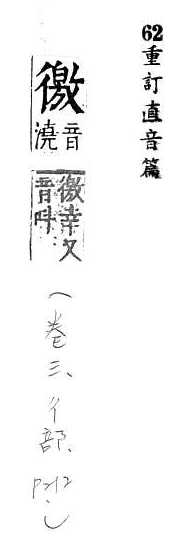 62重訂直音篇
徼
音
澆
徼幸又
音叫
(卷三、彳部、